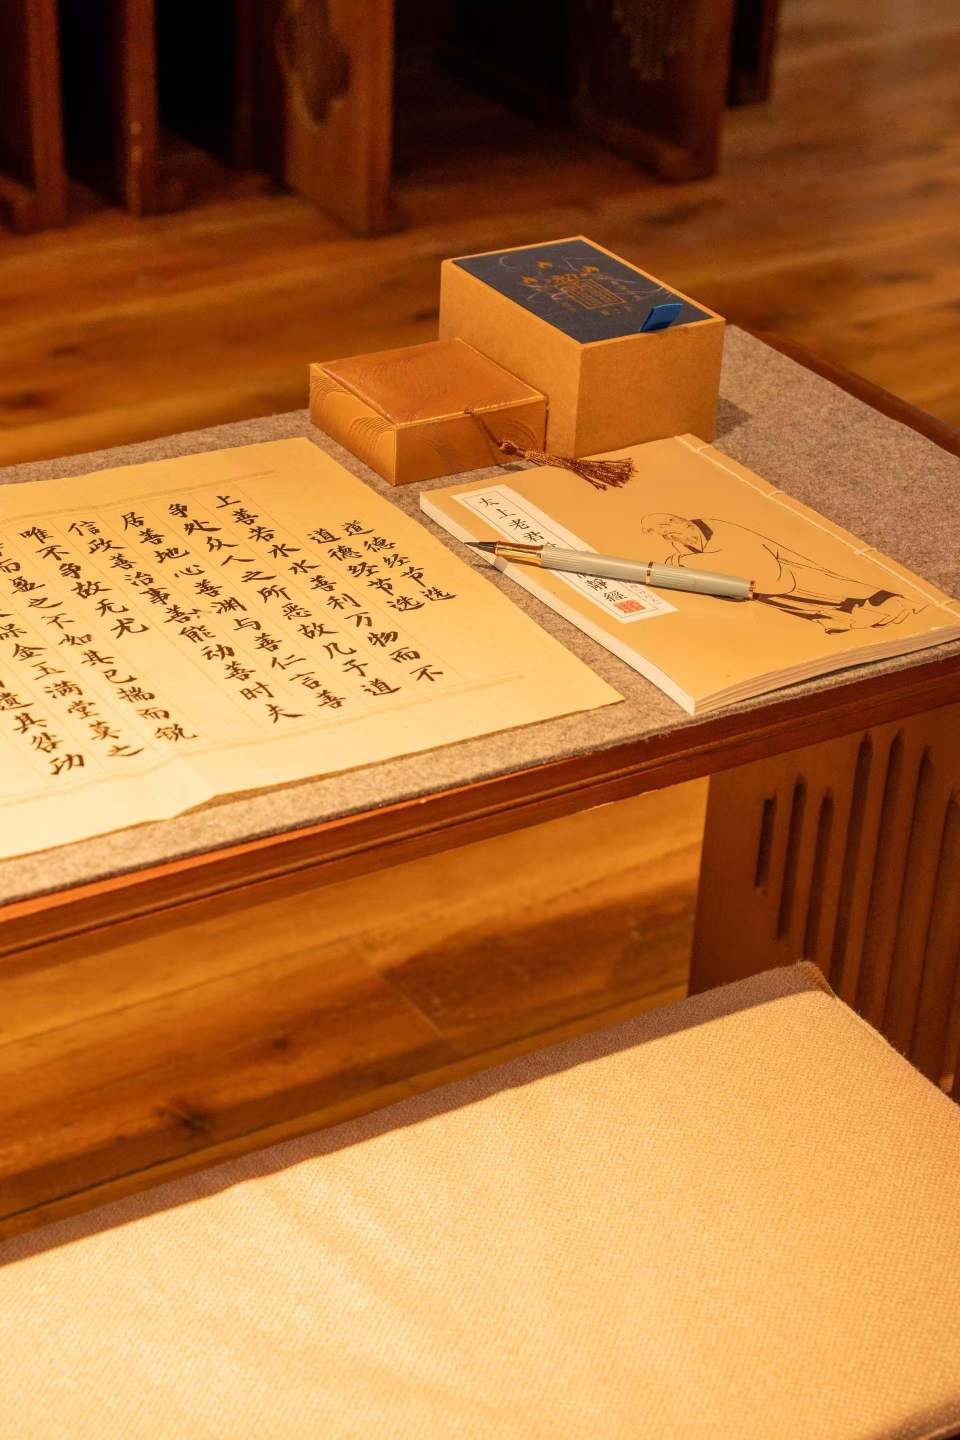 道德经节选
道德经节选
上善若水水善利万物而不
争处众人之所恶故几于道
居善地心善渊与善仁言善
信政善治事善能动善时夫
唯不争故无尤
而盈之不如其已揣而锐
保金玉满堂莫之
遗其咎功
太上老君 靜經